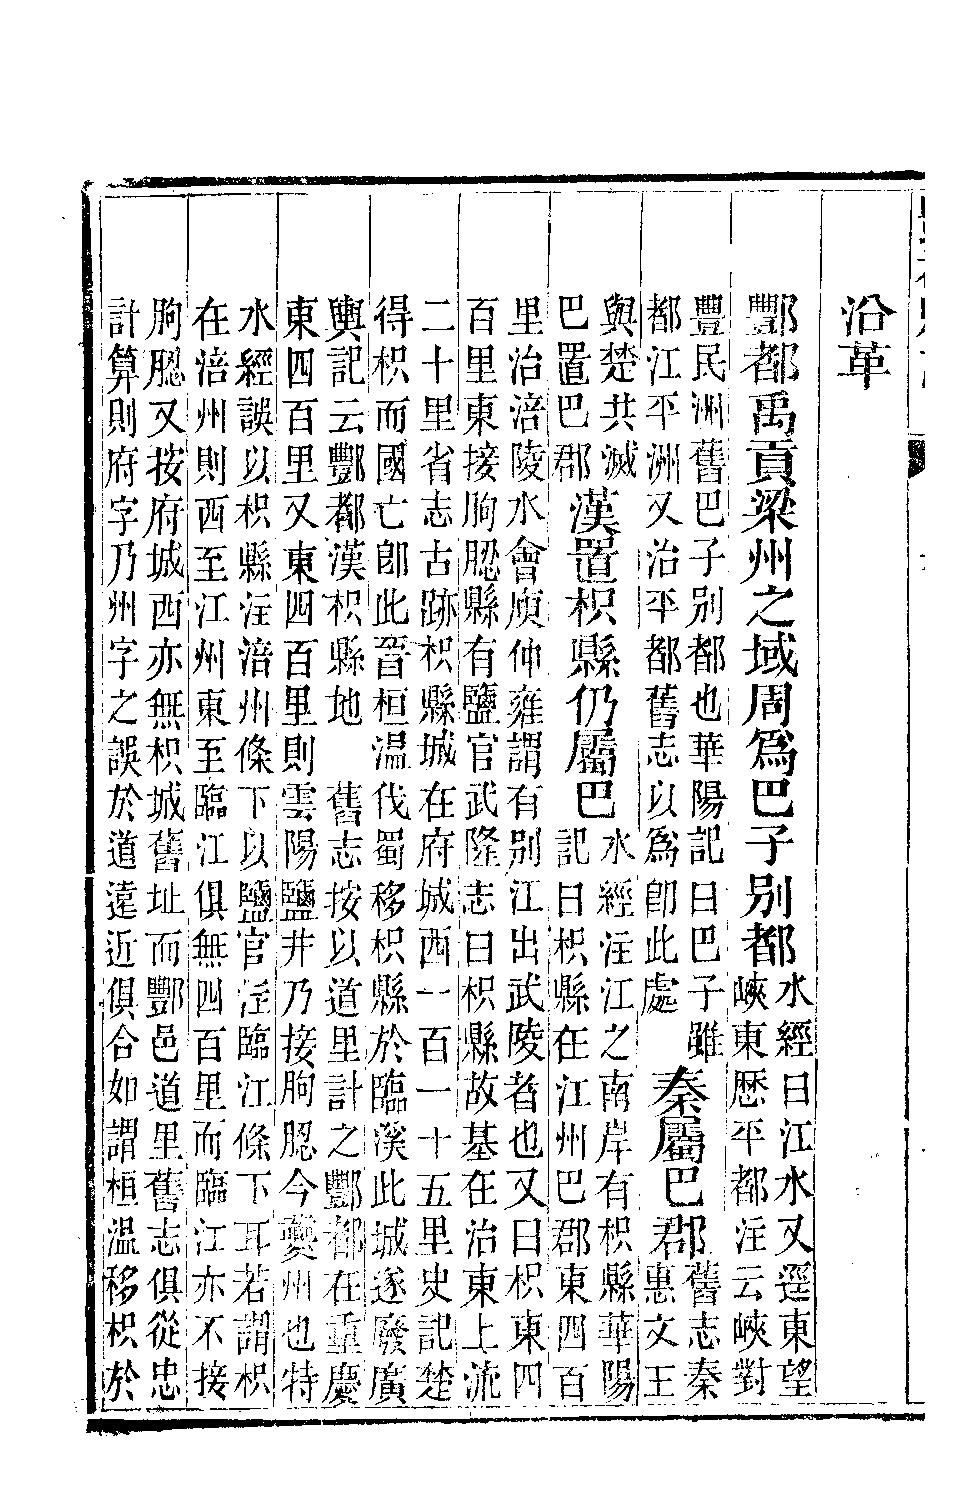 沿革
酆都禹貢梁州之域周爲巴子別都
水經曰江水又逕東望
峽東歷平都注云峽對
豐民洲舊巴子別都也華陽記曰巴子雖
都江平洲又治平都舊志以爲卽此處
秦屬巴郡
舊志秦
惠文王
與楚共滅
巴置巴郡
漢置枳縣仍屬巴
水經注江之南岸有枳縣華陽
記曰枳縣在江州巴郡東四百
里治涪陵水會庾仲雍謂有別江出武陵者也又曰枳東四
百里東接朐䏰縣有鹽官武隆志曰枳縣故基在治東上流
二十里省志古跡枳縣城在府城西一百一十五里史記楚
得枳而國亡卽此晉桓温伐蜀移枳縣於臨溪此城遂廢廣
輿記云酆都漢枳縣地　舊志按以道里計之酆都在重慶
東四百里又東四百里則雲陽鹽井乃接朐䏰今夔州也特
水經誤以枳縣注涪州條下以鹽官注臨江條下耳若謂枳
在涪州則西至江州東至臨江俱無四百里而臨江亦不接
朐䏰又按府城西亦無枳城舊址而酆邑道里舊志俱從忠
計算則府字乃州字之誤於道遠近俱合如謂桓温移枳於